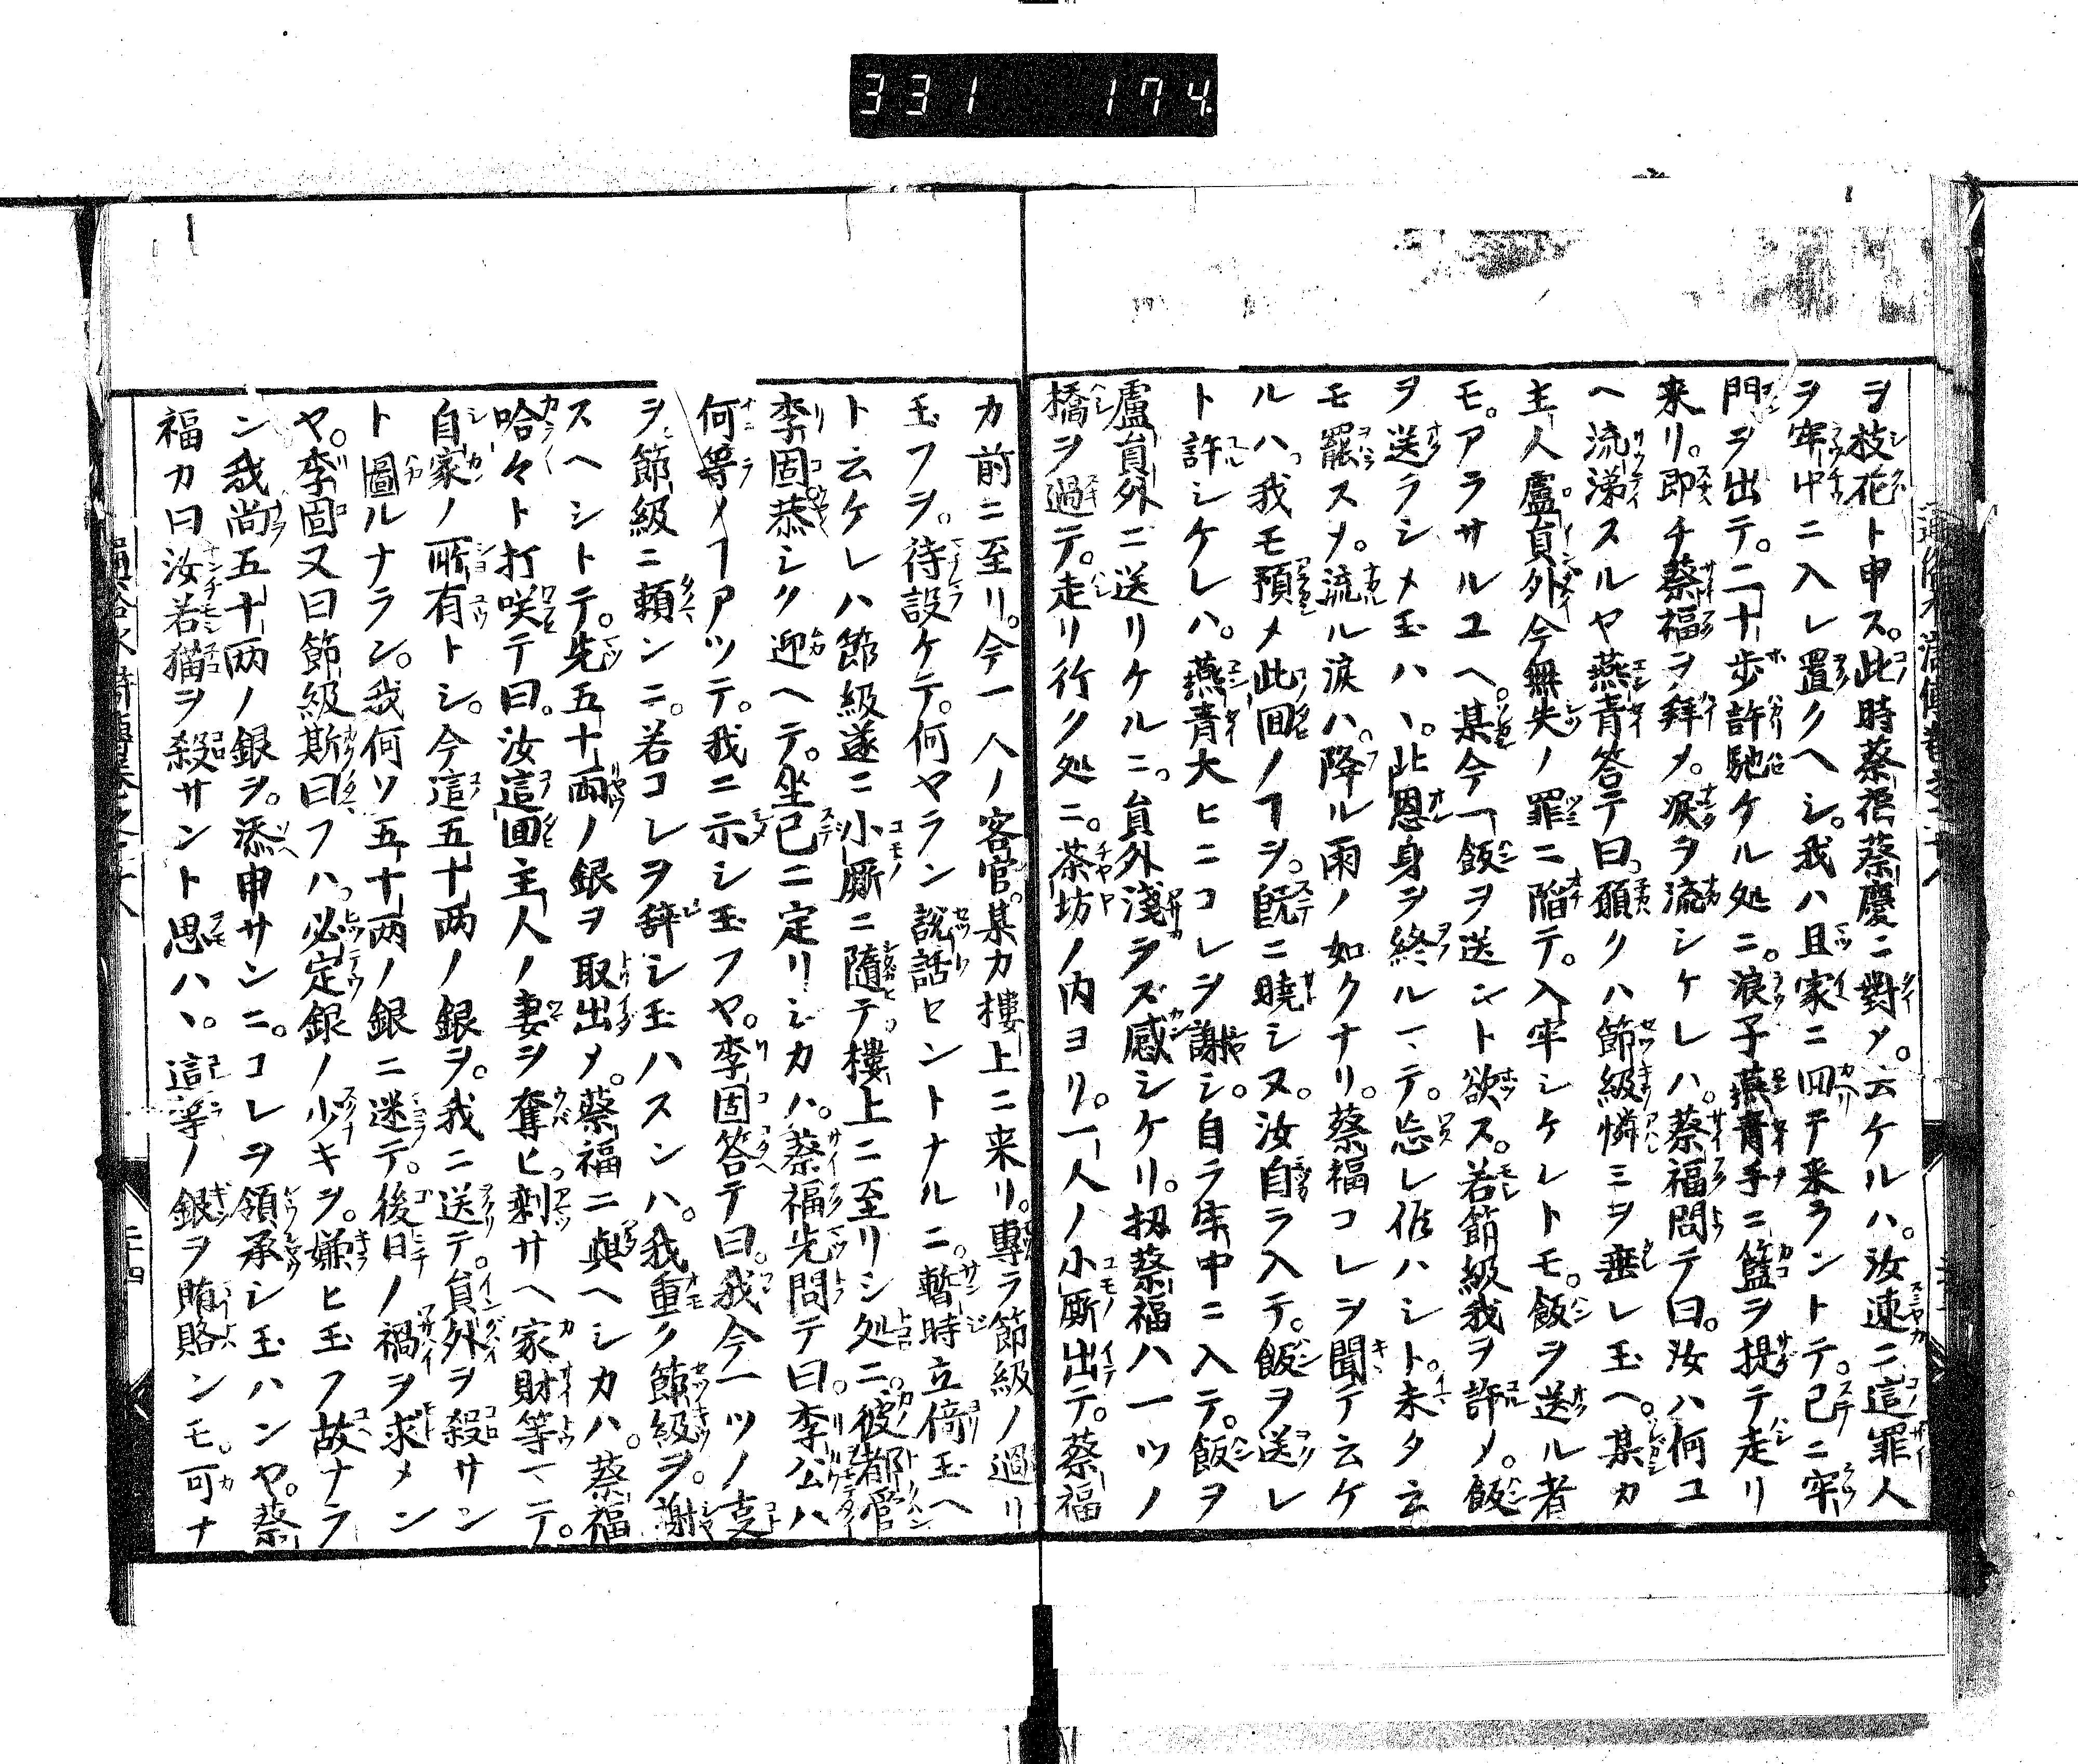 331 174
ヲ枝花ト申ス。此時蔡福蔡慶ニ對メ。云ケルハ。汝速ニ這罪人
ヲ牢中ニ入レ置クヘシ。我ハ且家ニ回テ来ラントテ。已ニ牢
門ヲ出テ。二十歩許馳ケル処ニ。浪子燕青手ニ籃ヲ提テ走リ
来リ。即チ蔡福ヲ拜メ。涙ヲ流シケレハ。蔡福問テ曰。汝ハ何ユ
ヘ流涕スルヤ燕青答テ曰。願クハ節級憐ミヲ垂レ玉ヘ。某カ
主人盧員外今無失ノ罪ニ陥テ。入牢シケレトモ。飯ヲ送ル者
モ。アラサルユヘ。某今一飯ヲ送ント欲ス。若節級我ヲ許メ。飯
ヲ送ラシメ玉ハヽ。此恩身ヲ終ルマテ。忘レ侭ハシト。未タ云
モ罷スメ。流ル涙ハ。降ル雨ノ如クナリ。蔡福コレヲ聞テ云ケ
ルハ。我モ預メ此囬ノヿヲ。既ニ曉シヌ。汝自ラ入テ。飯ヲ送レ
ト許シケレハ。燕青大ヒニコレヲ謝シ。自ラ牢中ニ入テ。飯ヲ
盧員外ニ送リケルニ。員外淺ラズ感シケリ。扨蔡福ハ一ツノ
橋ヲ過テ。走リ行ク処ニ。茶坊ノ内ヨリ。一人ノ小厮出テ。蔡福
カ前ニ至リ。今一人ノ客官。某カ樓上ニ来リ。專ラ節級ノ過リ
玉フヲ。待設ケテ。何ヤラン說話セントナルニ。暫時立倚玉ヘ
ト云ケレハ節級遂ニ小厮ニ隨テ。樓上ニ至リシ処ニ。彼都管
李固恭シク迎ヘテ。坐已ニ定リシカハ。蔡福先問テ曰。李公ハ
何等ノヿアツテ。我ニ示シ玉フヤ。李固答テ曰。我今一ツノ㕝
ヲ節級ニ頼ンニ。若コレヲ辞シ玉ハスンハ。我重ク節級ヲ。謝
スヘシトテ。先五十兩ノ銀ヲ取出メ。蔡福ニ與ヘシカハ。蔡福
哈々ト打咲テ曰。汝這囬主人ノ妻ヲ奪ヒ。剩サヘ家財等マテ。
自家ノ所有トシ。今這五十両ノ銀ヲ。我ニ送テ。員外ヲ殺サン
ト圖ルナラン。我何ソ五十両ノ銀ニ迷テ。後日ノ禍ヲ求メン
ヤ。李固又曰節級斯曰フハ。必定銀ノ少キヲ。嫌ヒ玉フ故ナラ
ン我尚五十両ノ銀ヲ。添申サンニ。コレヲ領承シ玉ハンヤ。蔡
福カ曰汝若猫ヲ殺サント思ハヽ。這等ノ銀ヲ賄賂ンモ。可ナ